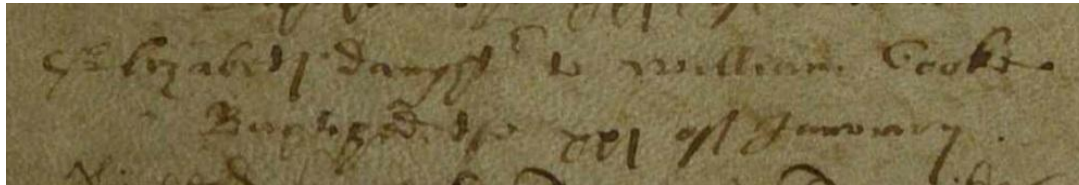 Elizabeth daught^r to William Cooke
Baptized the xxj of January.